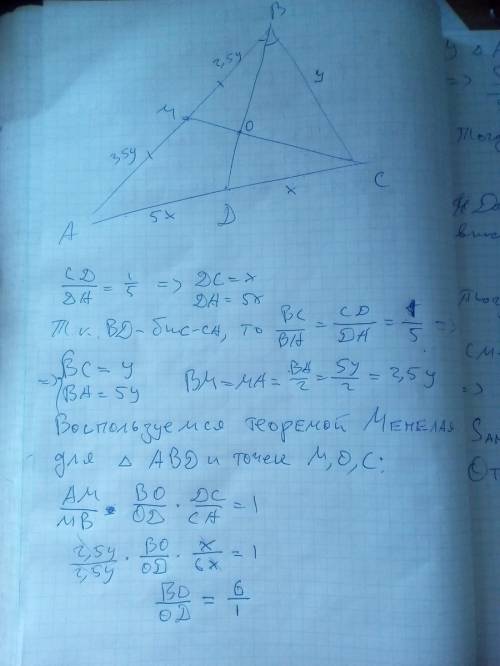 B
2,5y
y
M
O
2,5y
C
x
D
5x
A
CD/DA = 1/5 => DC = x
DA = 5x
Т.к. BD - бис-са, то BC/BA = CD/DA = 1/5 =>
=> BC = y
BA = 5y BM = MA = BA/2 = 5y/2 = 2,5y =>
Воспользуемся теоремой Менелая
для △ ABD и точек M, O, C:
AM/MB · BO/OD · DC/CA = 1
2,5y/2,5y · BO/OD · x/6x = 1
BO/OD = 6/1